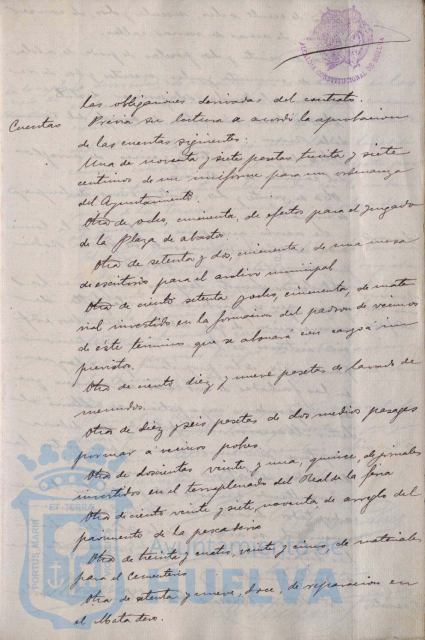 ALCALDIA CONSTITUCIONAL DE HUELVA
las obligaciones derivadas del contrato.
Cuentas
Prévia su lectura se acordó la aprobacion
de las cuentas siguientes:
Una de noventa y siete pesetas treinta y siete
centimos de un uniforme para un ordenanza
del Ayuntamiento.
Otra de ocho, cincuenta, de efectos para el juzgado
de la Plaza de abastos.
Otra de setenta y dos, cincuenta, de una mesa
de escritorio para el archivo municipal
Otra de ciento setenta y ocho, cincuenta, de mate
rial invertido en la formacion del padron de vecinos
de éste término que se abonará con cargo á im
previstos.
Otra de ciento diez y nueve pesetas de lavado de
menudos.
Otra de diez y seis pesetas de dos medios pasages
por mar á vecinos pobres.
Otra de doscientas veinte y una, quince, de jornales
invertidos en el terraplenado del Real de la feria
Otra de ciento veinte y siete, noventa, de arreglo del
pavimento de la pescaderia
Otra de treinta y cuatro, veinte y cinco, de materiales
para el Cementerio
Otra de setenta y nueve, doce, de reparacion en
el Matadero.
PORTUS MARIS ET TERRAE
Ayuntamiento de
HUELVA